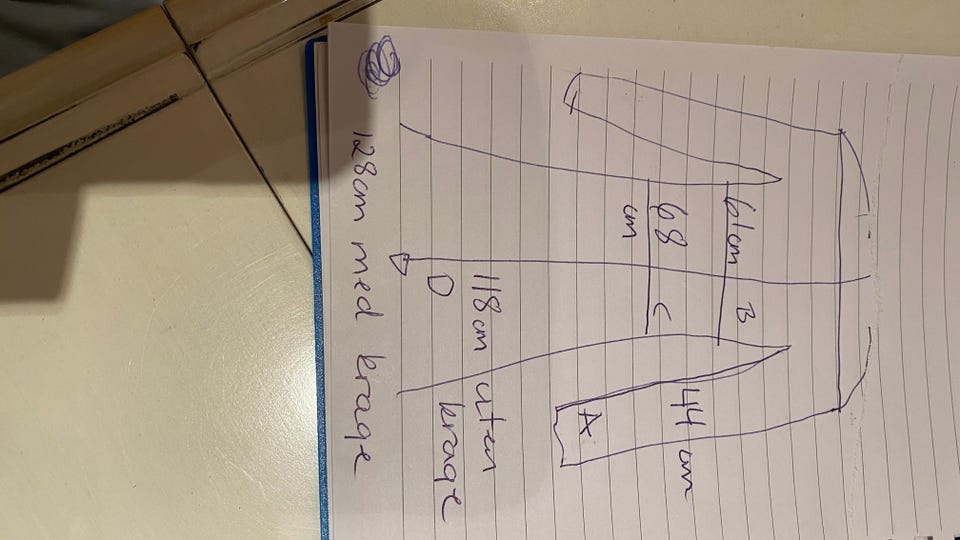 61cm B
68 C
cm
44 cm
A
118cm uten
D krage
128cm med krage